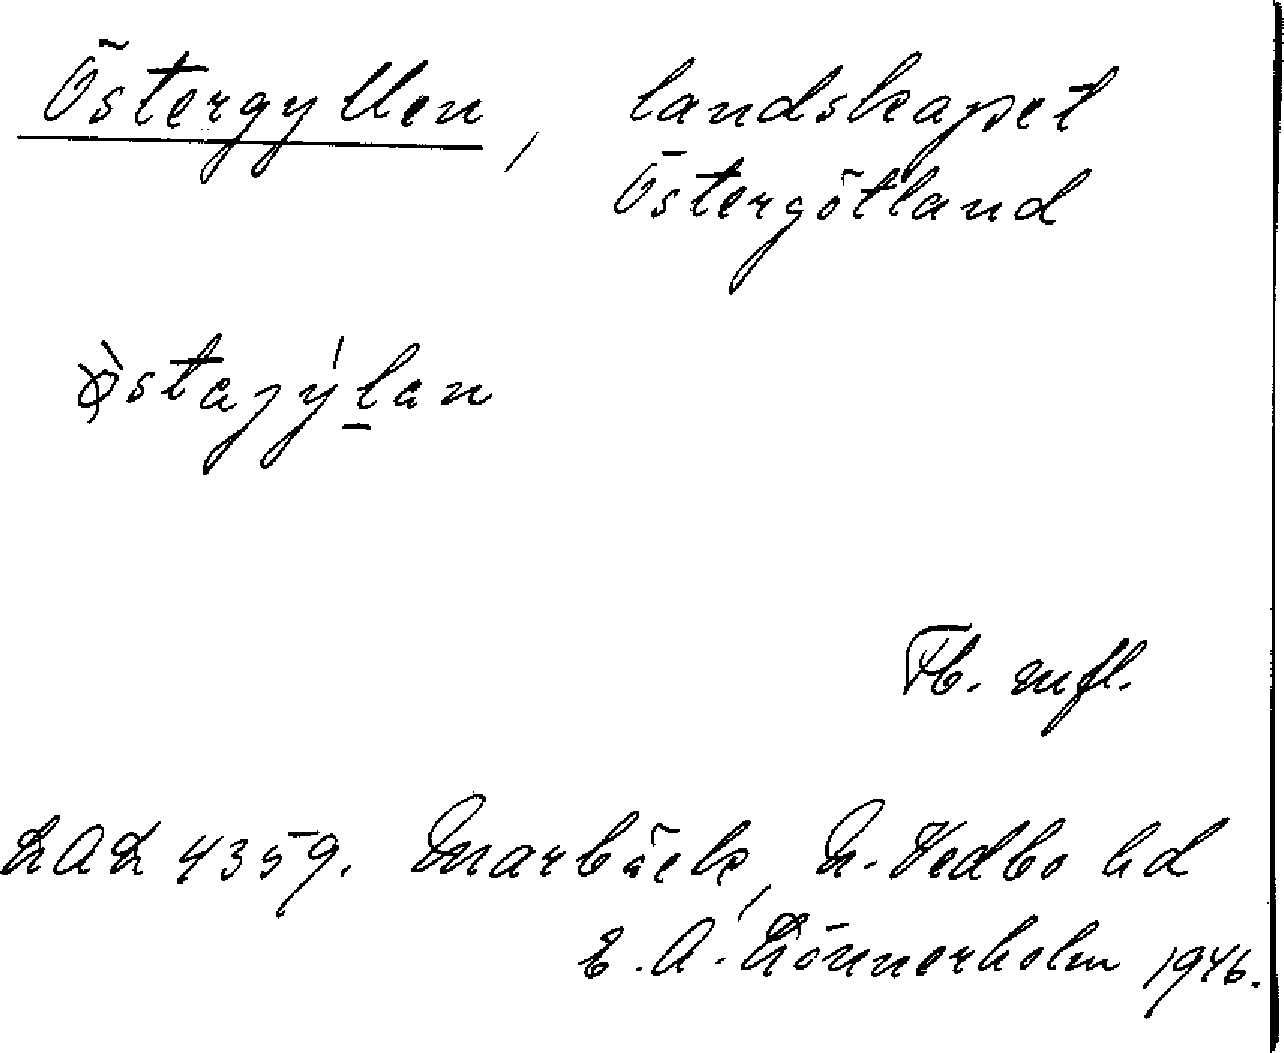 Östergyllen, landskapet
Östergötland
östajýlan
Fb. mfl.
LAL 4359. Marbäck, N. Vedbo hd
E. A. Lönnerholm 1946.